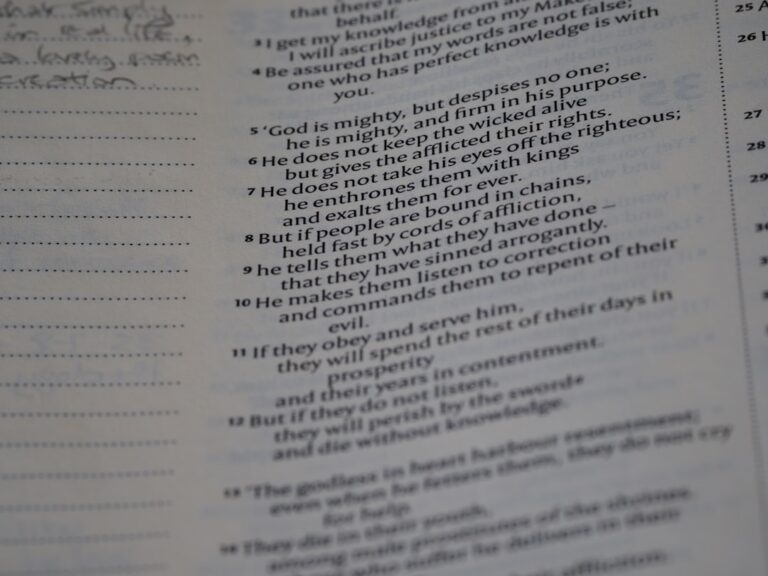 what simply
in real life,
a lovely poem
creation.
that there is
behalf.
3 I get my knowledge from
I will ascribe justice to my Make
4 Be assured that my words are not false;
one who has perfect knowledge is with
you.
5 ‘God is mighty, but despises no one;
he is mighty, and firm in his purpose.
6 He does not keep the wicked alive
but gives the afflicted their rights.
7 He does not take his eyes off the righteous;
he enthrones them with kings
and exalts them for ever.
8 But if people are bound in chains,
held fast by cords of affliction,
9 he tells them what they have done –
that they have sinned arrogantly.
10 He makes them listen to correction
and commands them to repent of their
evil.
11 If they obey and serve him,
they will spend the rest of their days in
prosperity
and their years in contentment.
12 But if they do not listen,
they will perish by the sword
and die without knowledge.
13 ‘The godless in heart harbour resentment;
even when he fetters them, they do not cry
for help.
14 They die in their youth,
among male prostitutes of the shrines.
who suffer he delivers in their
affliction.
25 A
26 H
27
28
29